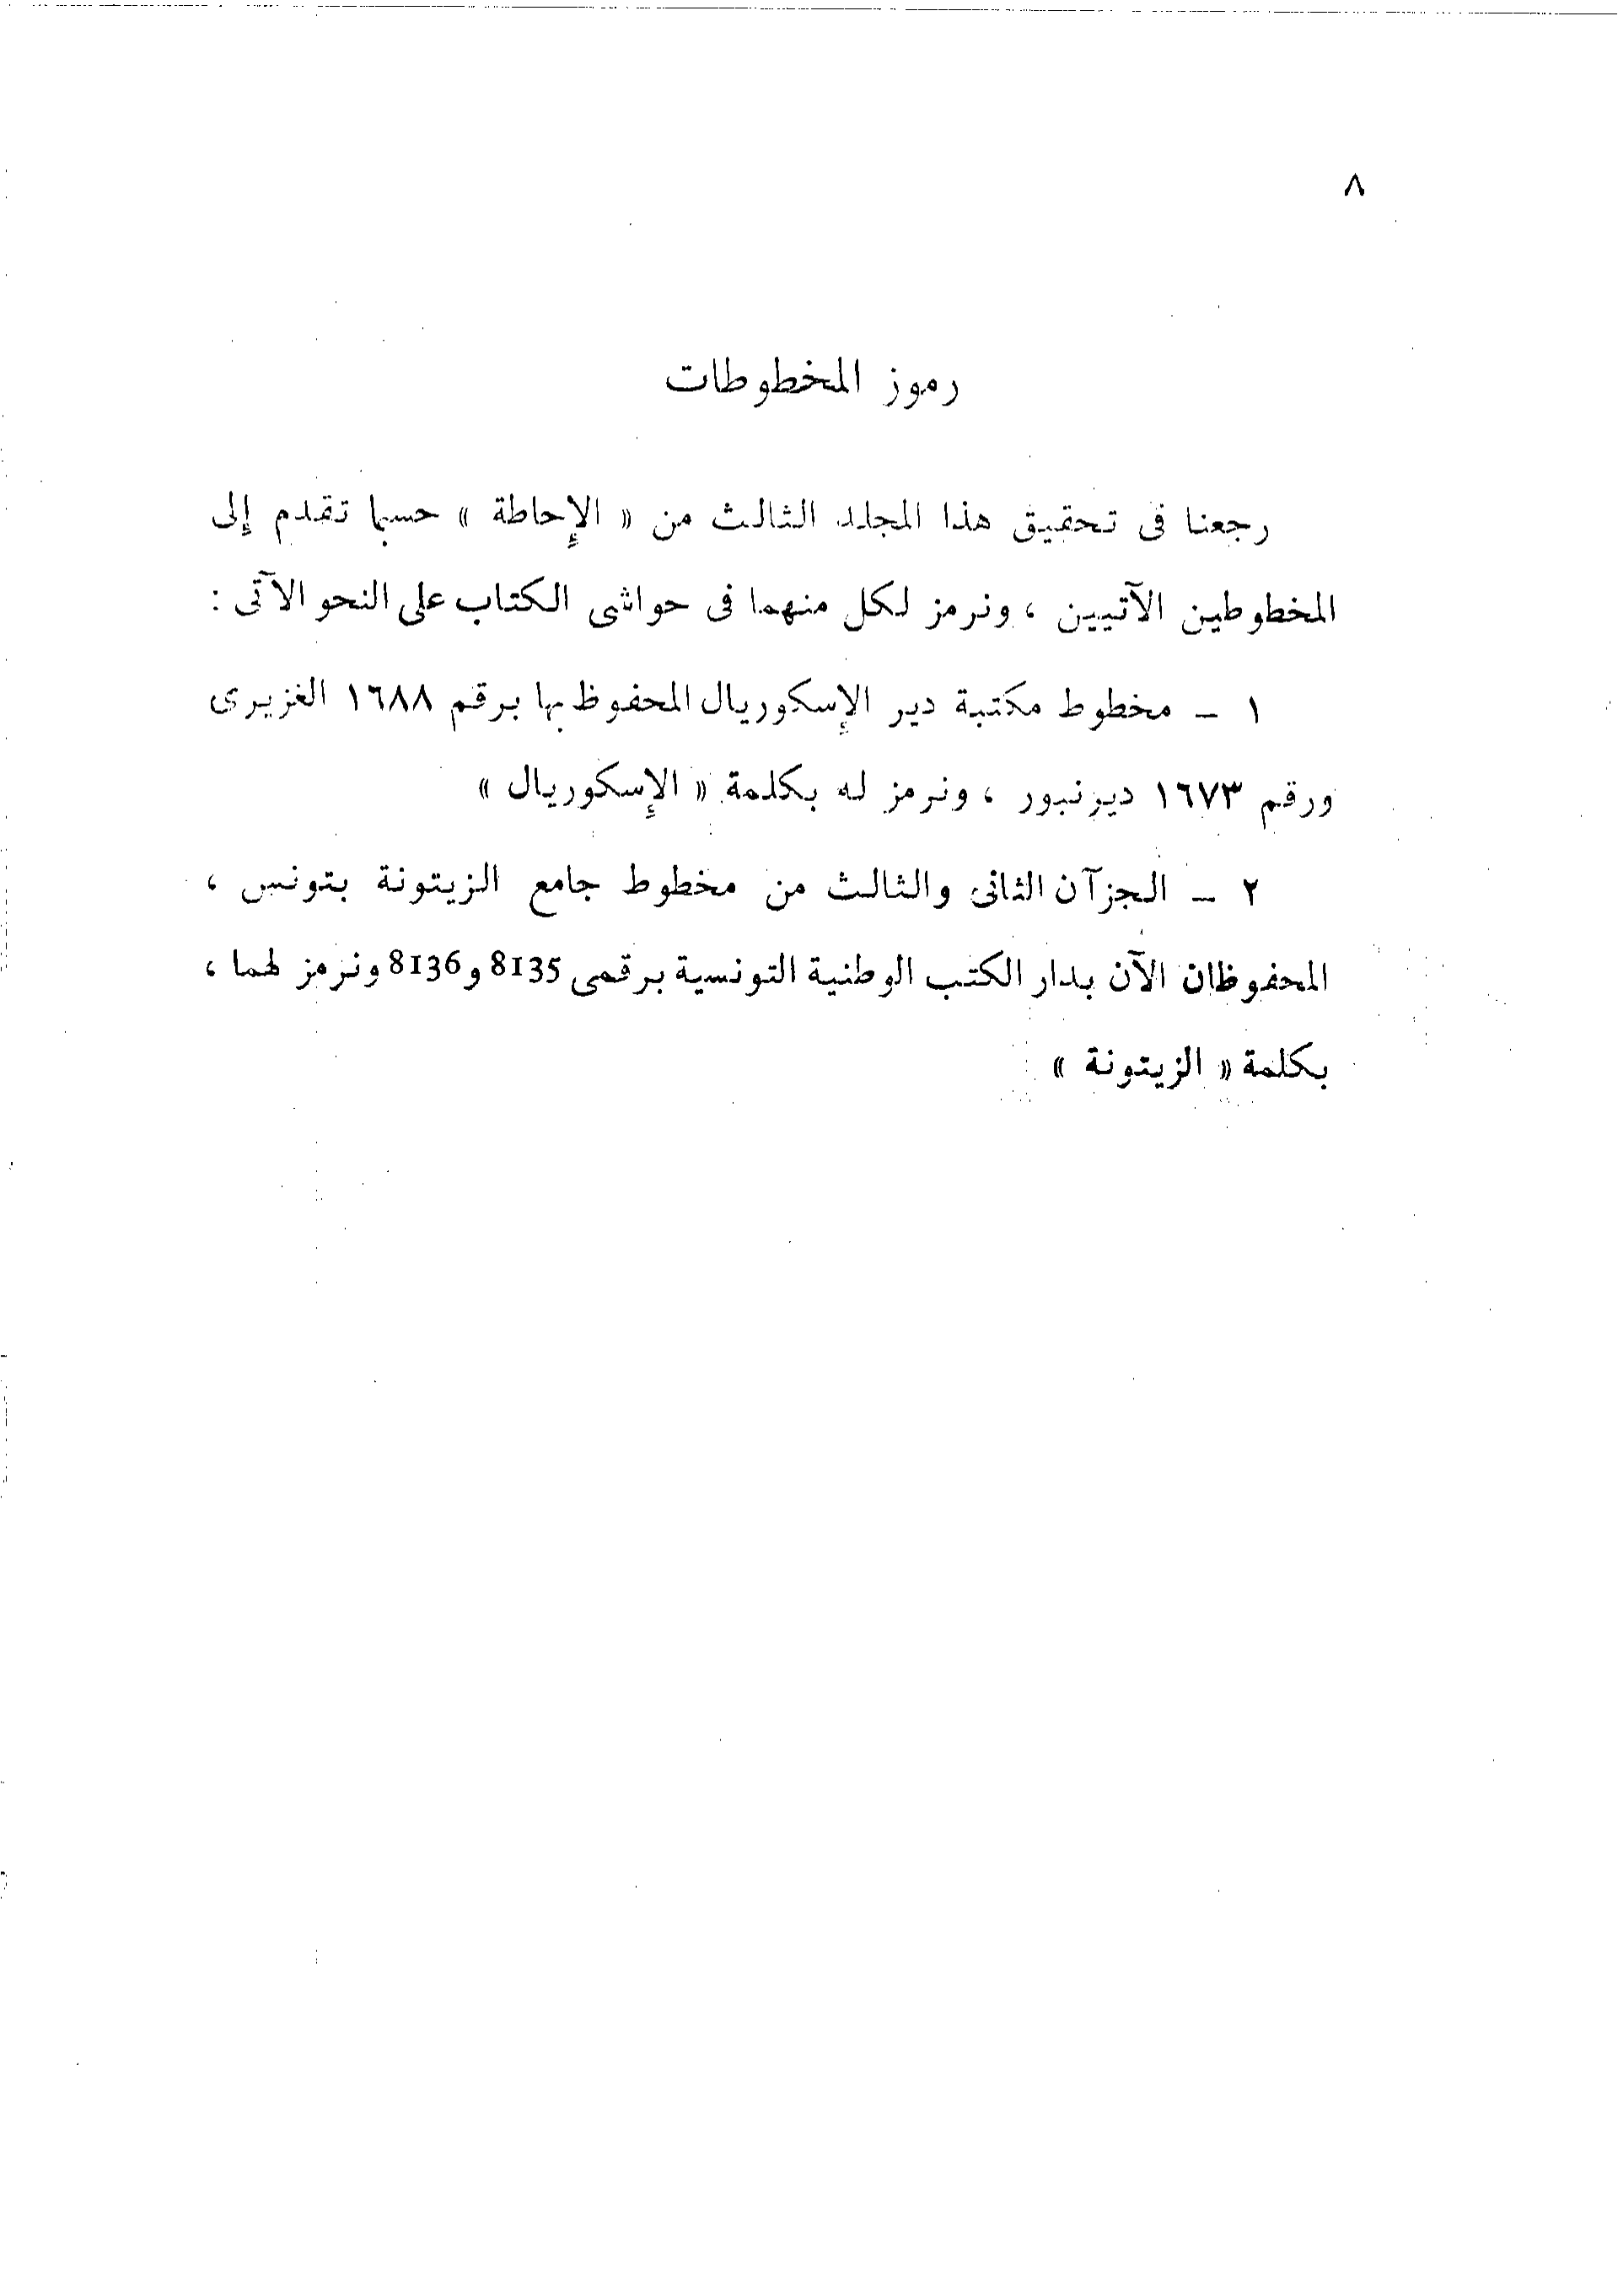 ٨
رموز المخطوطات
رجعنا فى تحقيق هذا المجلد الثالث من « الإحاطة » حسبما تقدم إلى
المخطوطين الآتيين ، ونرمز لكل منهما فى حواشى الكتاب على النحو الآتى :
١ – مخطوط مكتبة دير الإسكوريال المحفوظ بها برقم ١٦٨٨ الغزيرى
ورقم ١٦٧٣ ديرنبور ، ونرمز له بكلمة « الإسكوريال »
٢ – الجزآن الثانى والثالث من مخطوط جامع الزيتونة بتونس ،
المحفوظان الآن بدار الكتب الوطنية التونسية برقمى 8135 و8136 ونرمز لهما ،
بكلمة « الزيتونة »